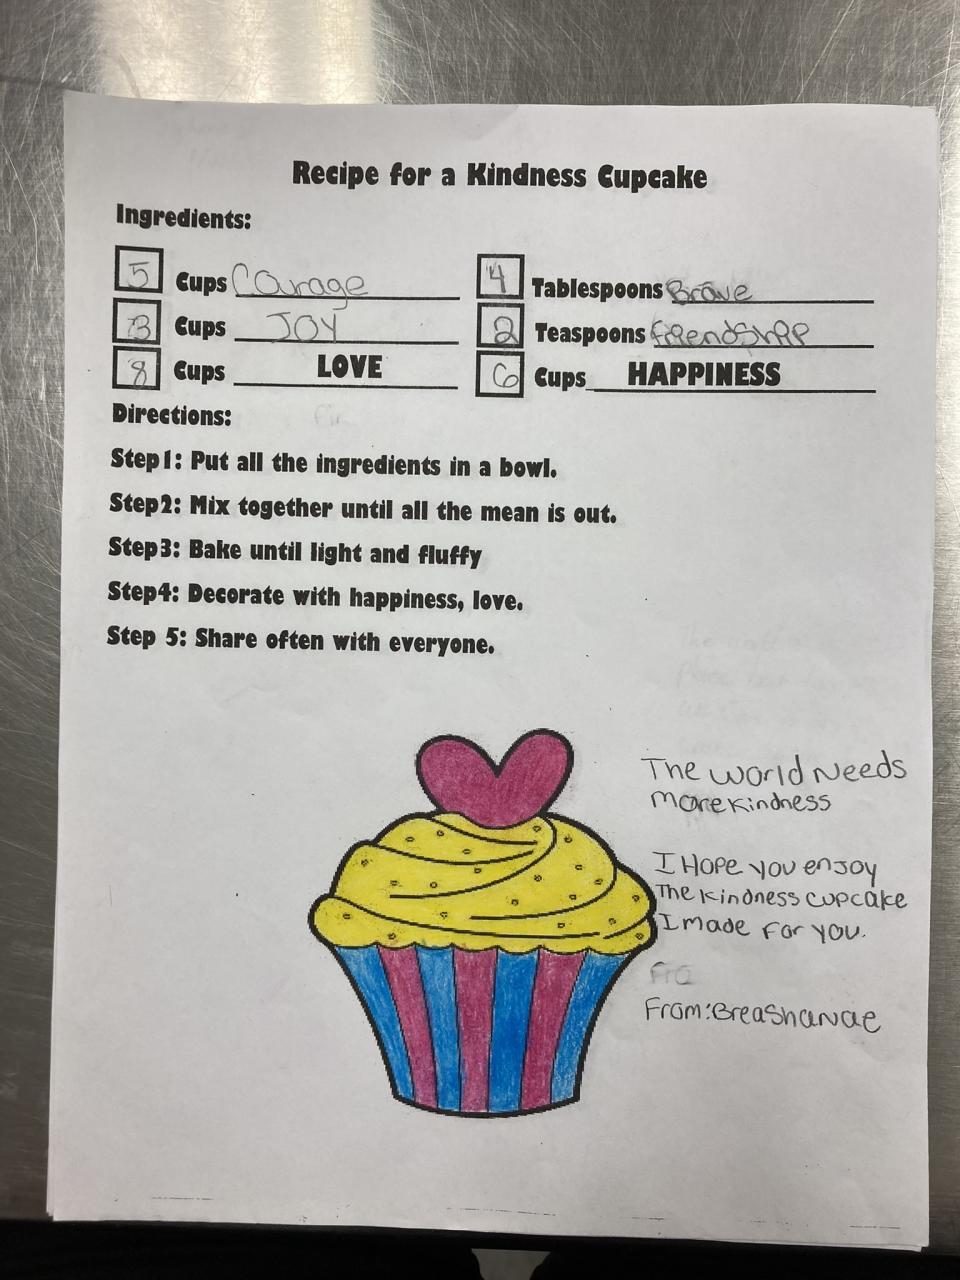 Recipe for a Kindness Cupcake
Ingredients:
5 Cups Courage
4 Tablespoons Brave
3 Cups JOY
2 Teaspoons friendship
8 Cups LOVE
6 Cups HAPPINESS
Directions:
Step1: Put all the ingredients in a bowl.
Step2: Mix together until all the mean is out.
Step3: Bake until light and fluffy
Step4: Decorate with happiness, love.
Step 5: Share often with everyone.
The world Needs
more kindness
I Hope you enjoy
The kindness cupcake
I made For you.
From: BreaShanae